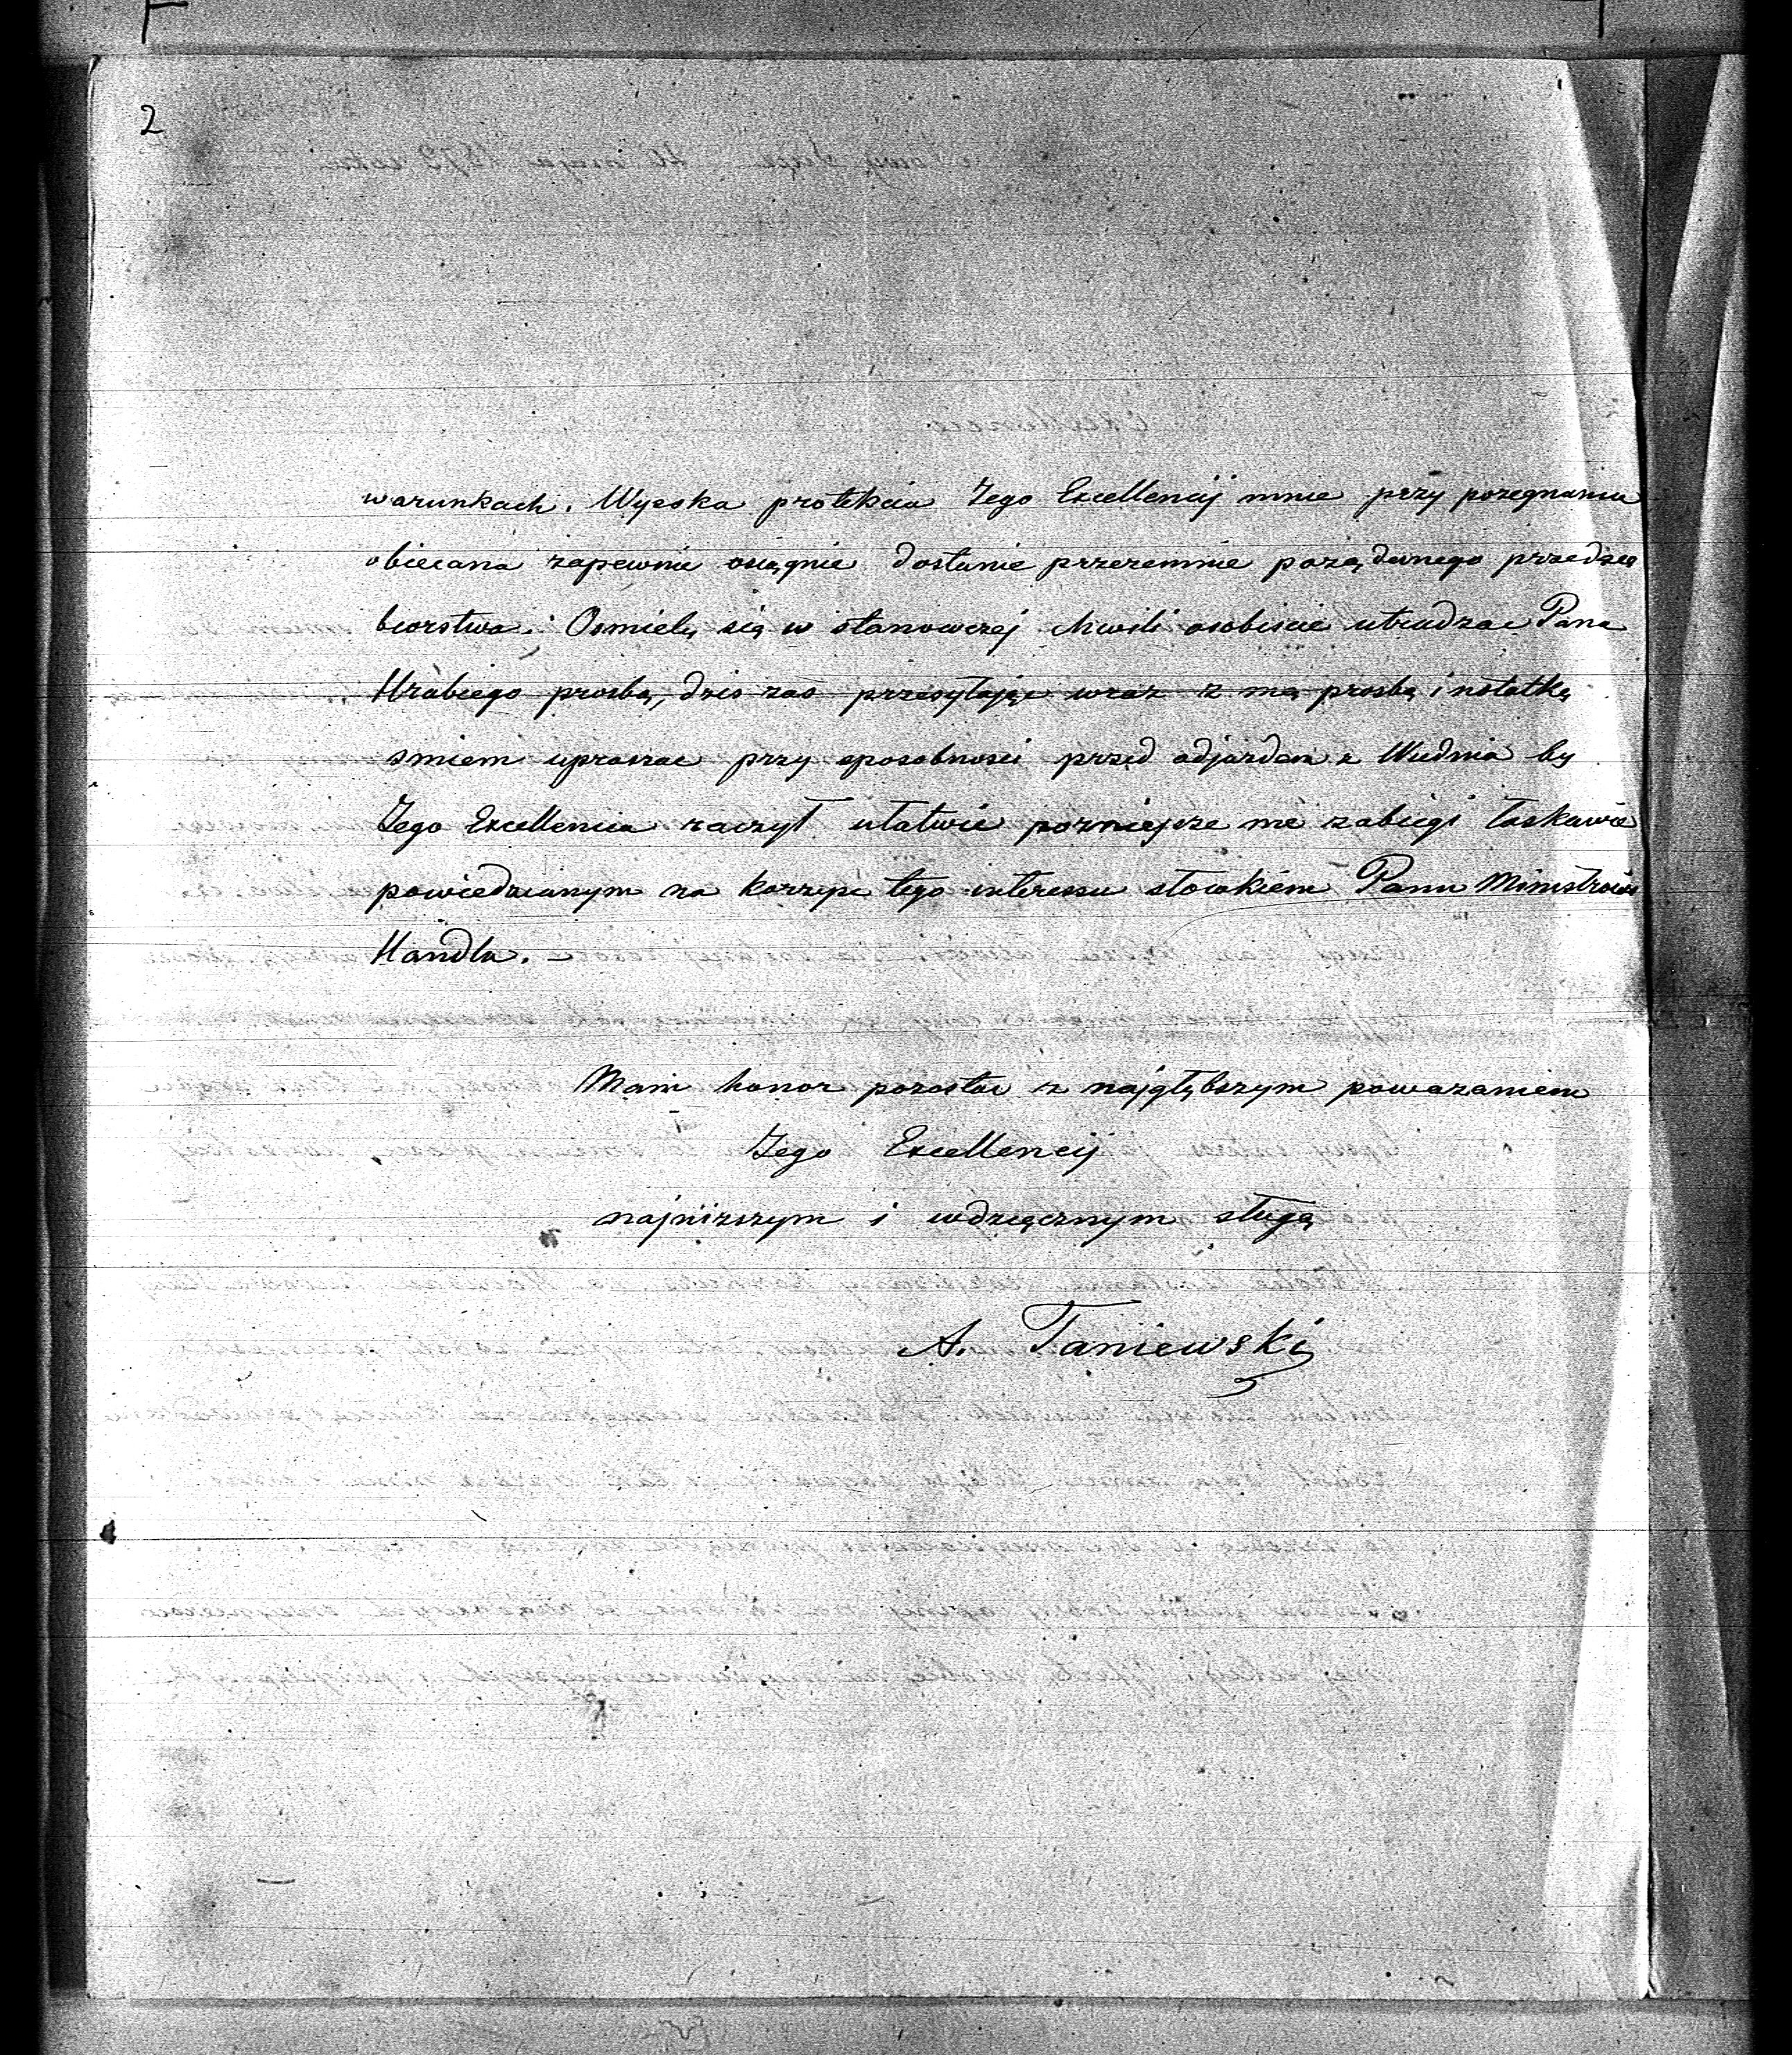 2
warunkach. Wysoka protekcia Jego Excellencij mnie przy pozegnaniu
obiecana zapewnie osiągnie dostanie przezemnie pozą danego przedsię
biorstwa. Osmielę się w stanowczej chwili osobiscie utrudzac Pana
Hrabiego prosbą, dzis zas przesyłając wraz z mą prosbą i notatkę
smiem upraszac przy sposobnosci przed odjazdem z Wiednia by
Jego Excellencia raczył ułatwic pozniejsze me zabiegi łaskawie
powiedzianym na korzysc tego interessu słowkiem Panu Ministrowi
Handlu. –
Mam honor pozostac z najgłębszym powazaniem
Jego Excellencij
najnizszym i wdzięcznym sługą
A. Taniewski